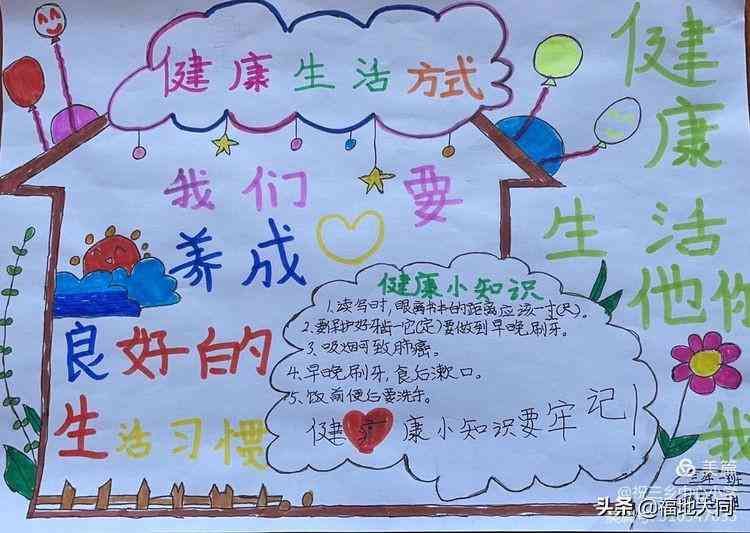 健康生活方式
我们要
养成
良好的
生活习惯
健康小知识
1.读写时,眼离书本的距离应该一寸(尺)。
2.要保护好牙齿一它(定)要做到早晚刷牙。
3.吸烟可致肺癌。
4.早晚刷牙,食后漱口。
5.饭前便后要洗手。
健康小知识要牢记!
健康
生活
他你
我
三年一班
美篇
头条@福地大同